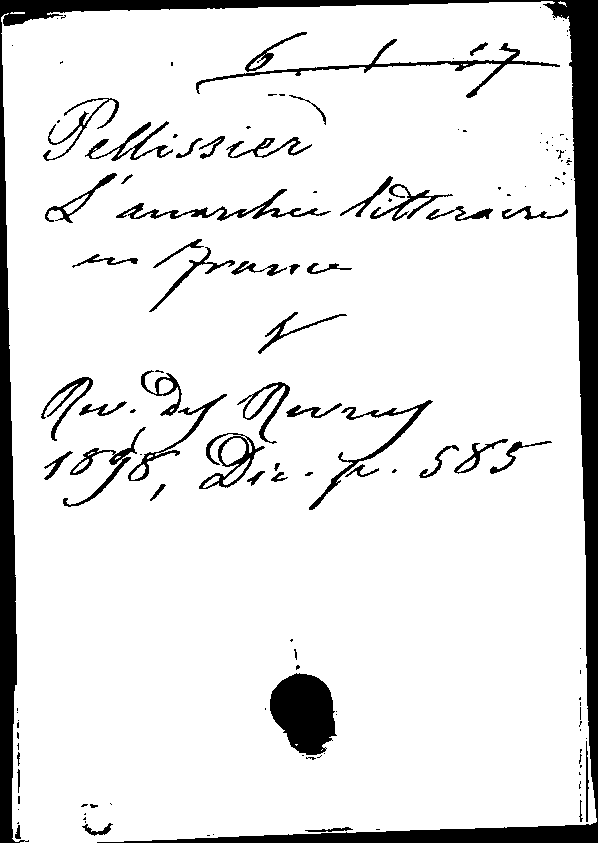 6. 1 17
Pellissier
L'anarchie litteraire
en France
Rev. des Revues
1898, Dic. p. 585